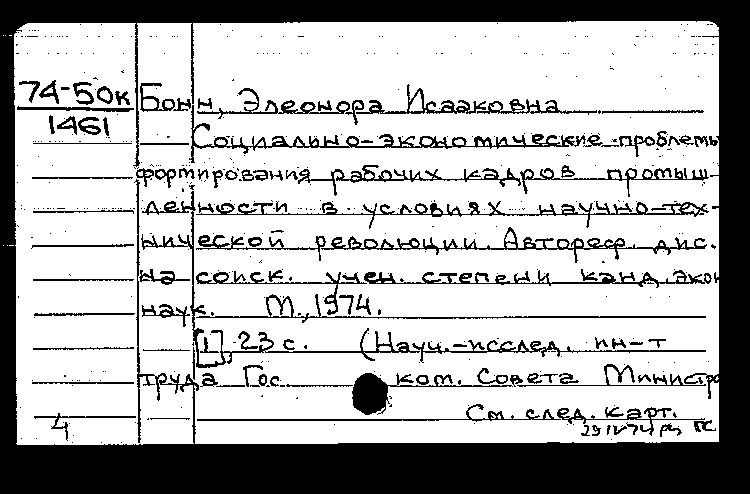 74-50к
1461
Бонн, Элеонора Исааковна
Социально-экономические проблемы
формирования рабочих кадров промыш-
ленности в условиях научно-тех-
нической революции. Автореф. дис.
на соиск. учен. степени канд. экон
наук. М., 1974.
[1], 23 с. (Науч.-исслед. ин-т
труда Гос. ком. Совета Министро
См. след. карт.
4